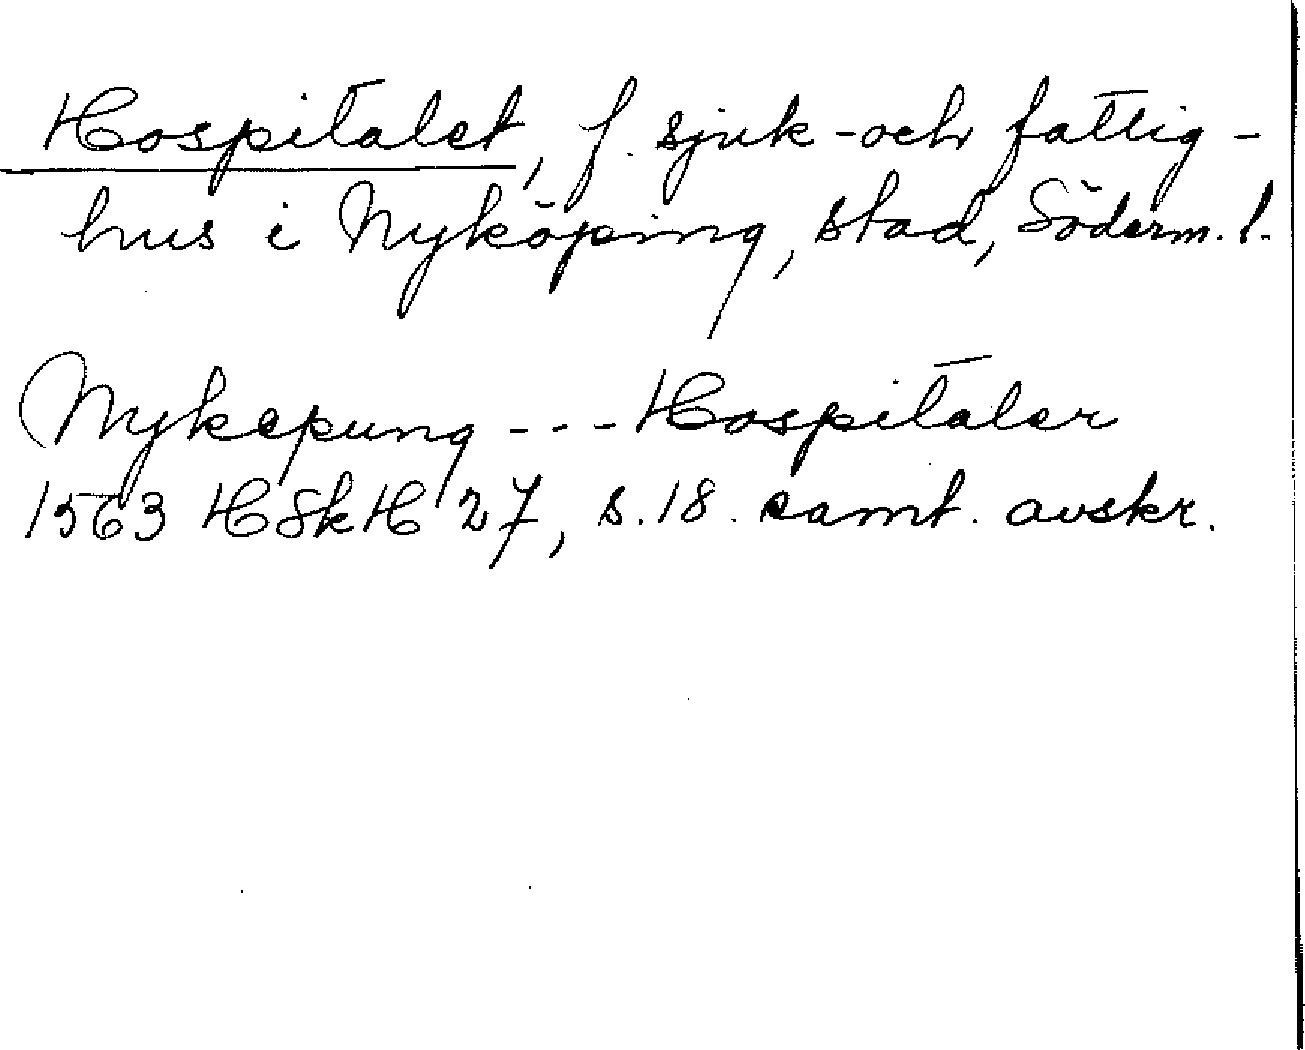 Hospitalet, f. sjuk- och fattig-
hus i Nyköping, stad, Söderm. l.
Nykepung - - - Hospitaler
1563 HSkH 27, s. 18. samt. avskr.